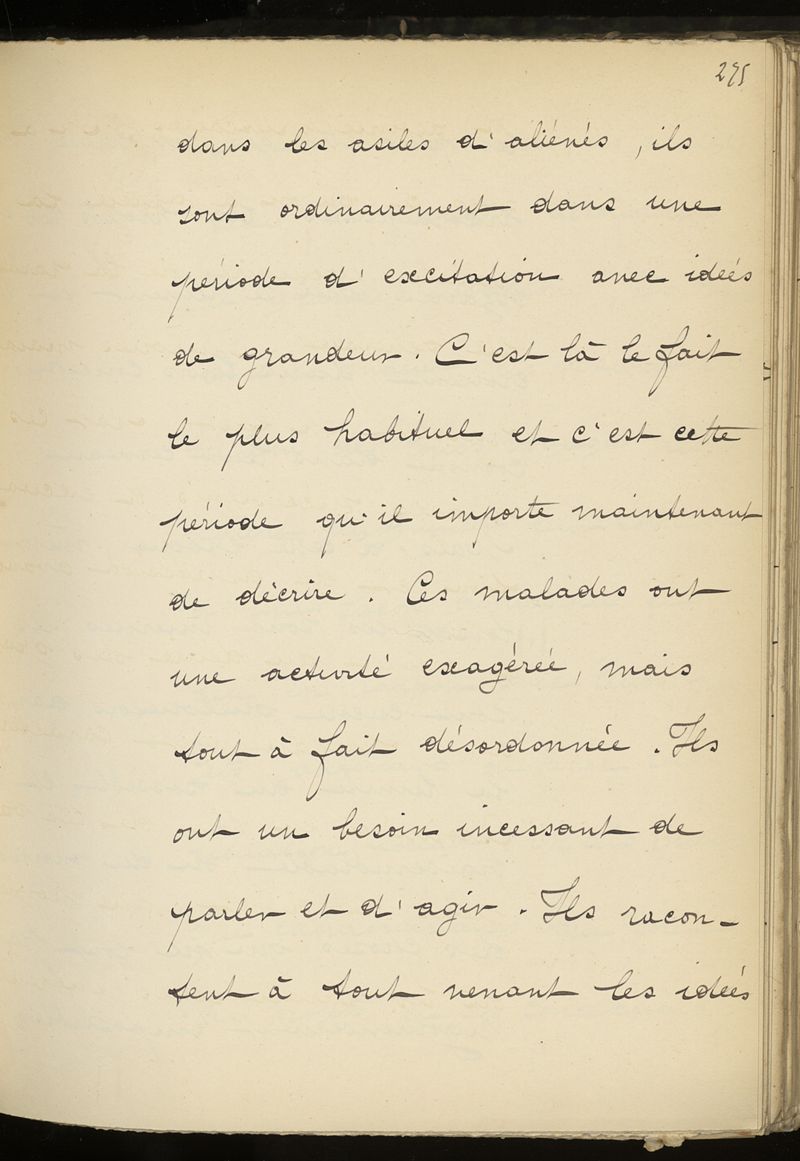 275
dans les asiles d'aliénés, ils
sont ordinairement dans une
période d'excitation avec idées
de grandeur. C'est là le fait
le plus habituel et c'est cette
période qu'il importe maintenant
de décrire. Ces malades ont
une activité exagérée, mais
tout à fait désordonnée. Ils
ont un besoin incessant de
parler et d'agir. Ils racon-
tent à tout venant les idées